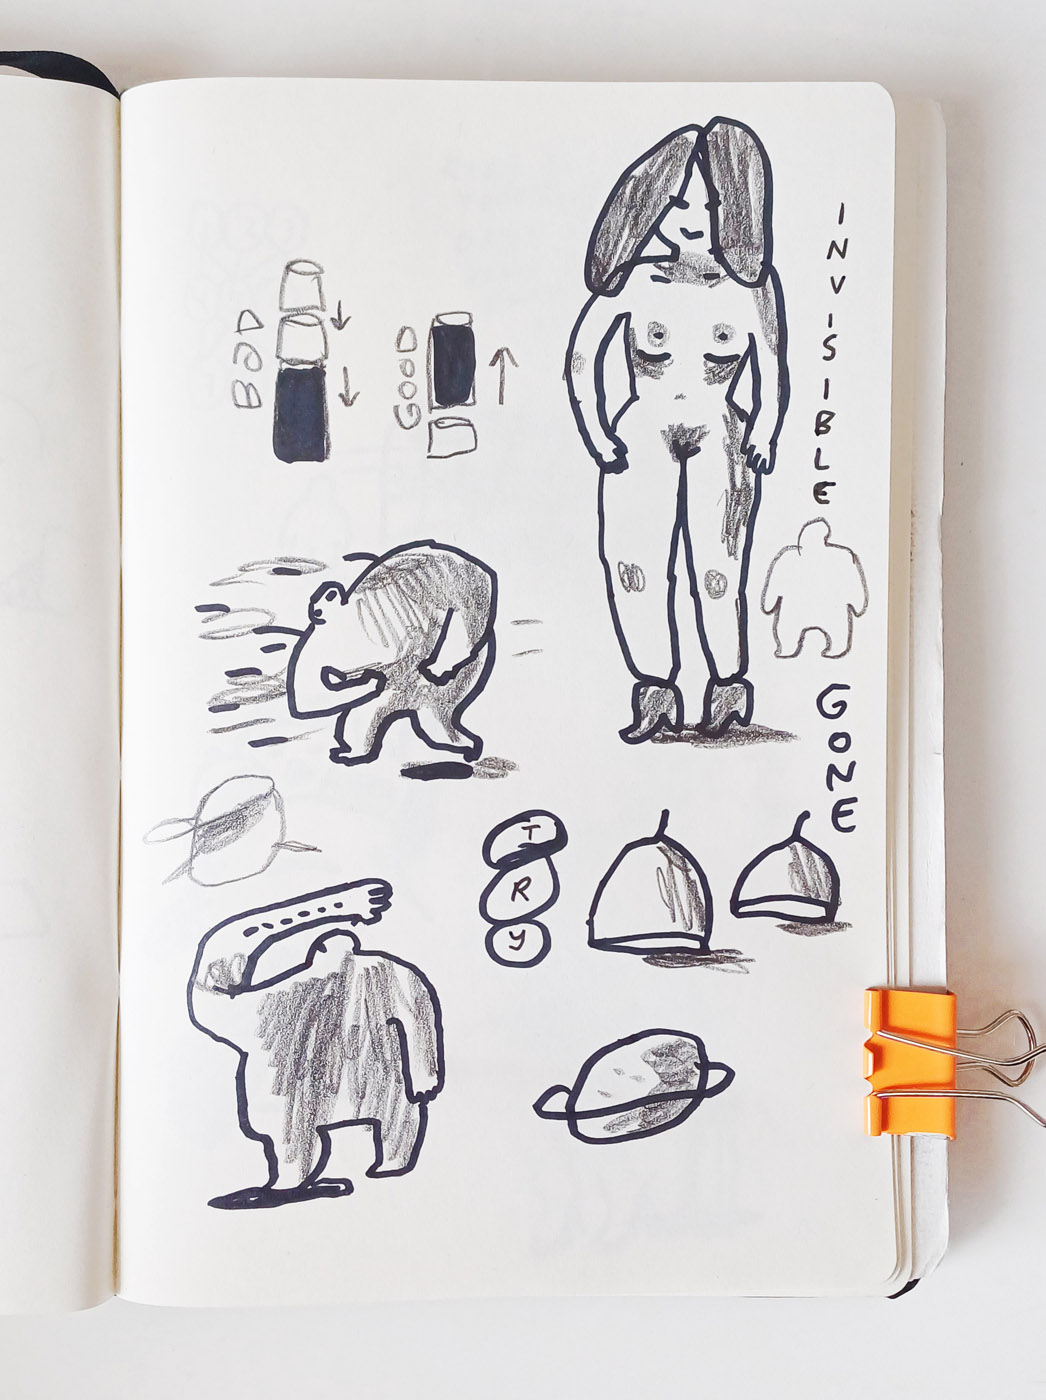 BAD
GOOD
INVISIBLE
GONE
TRY